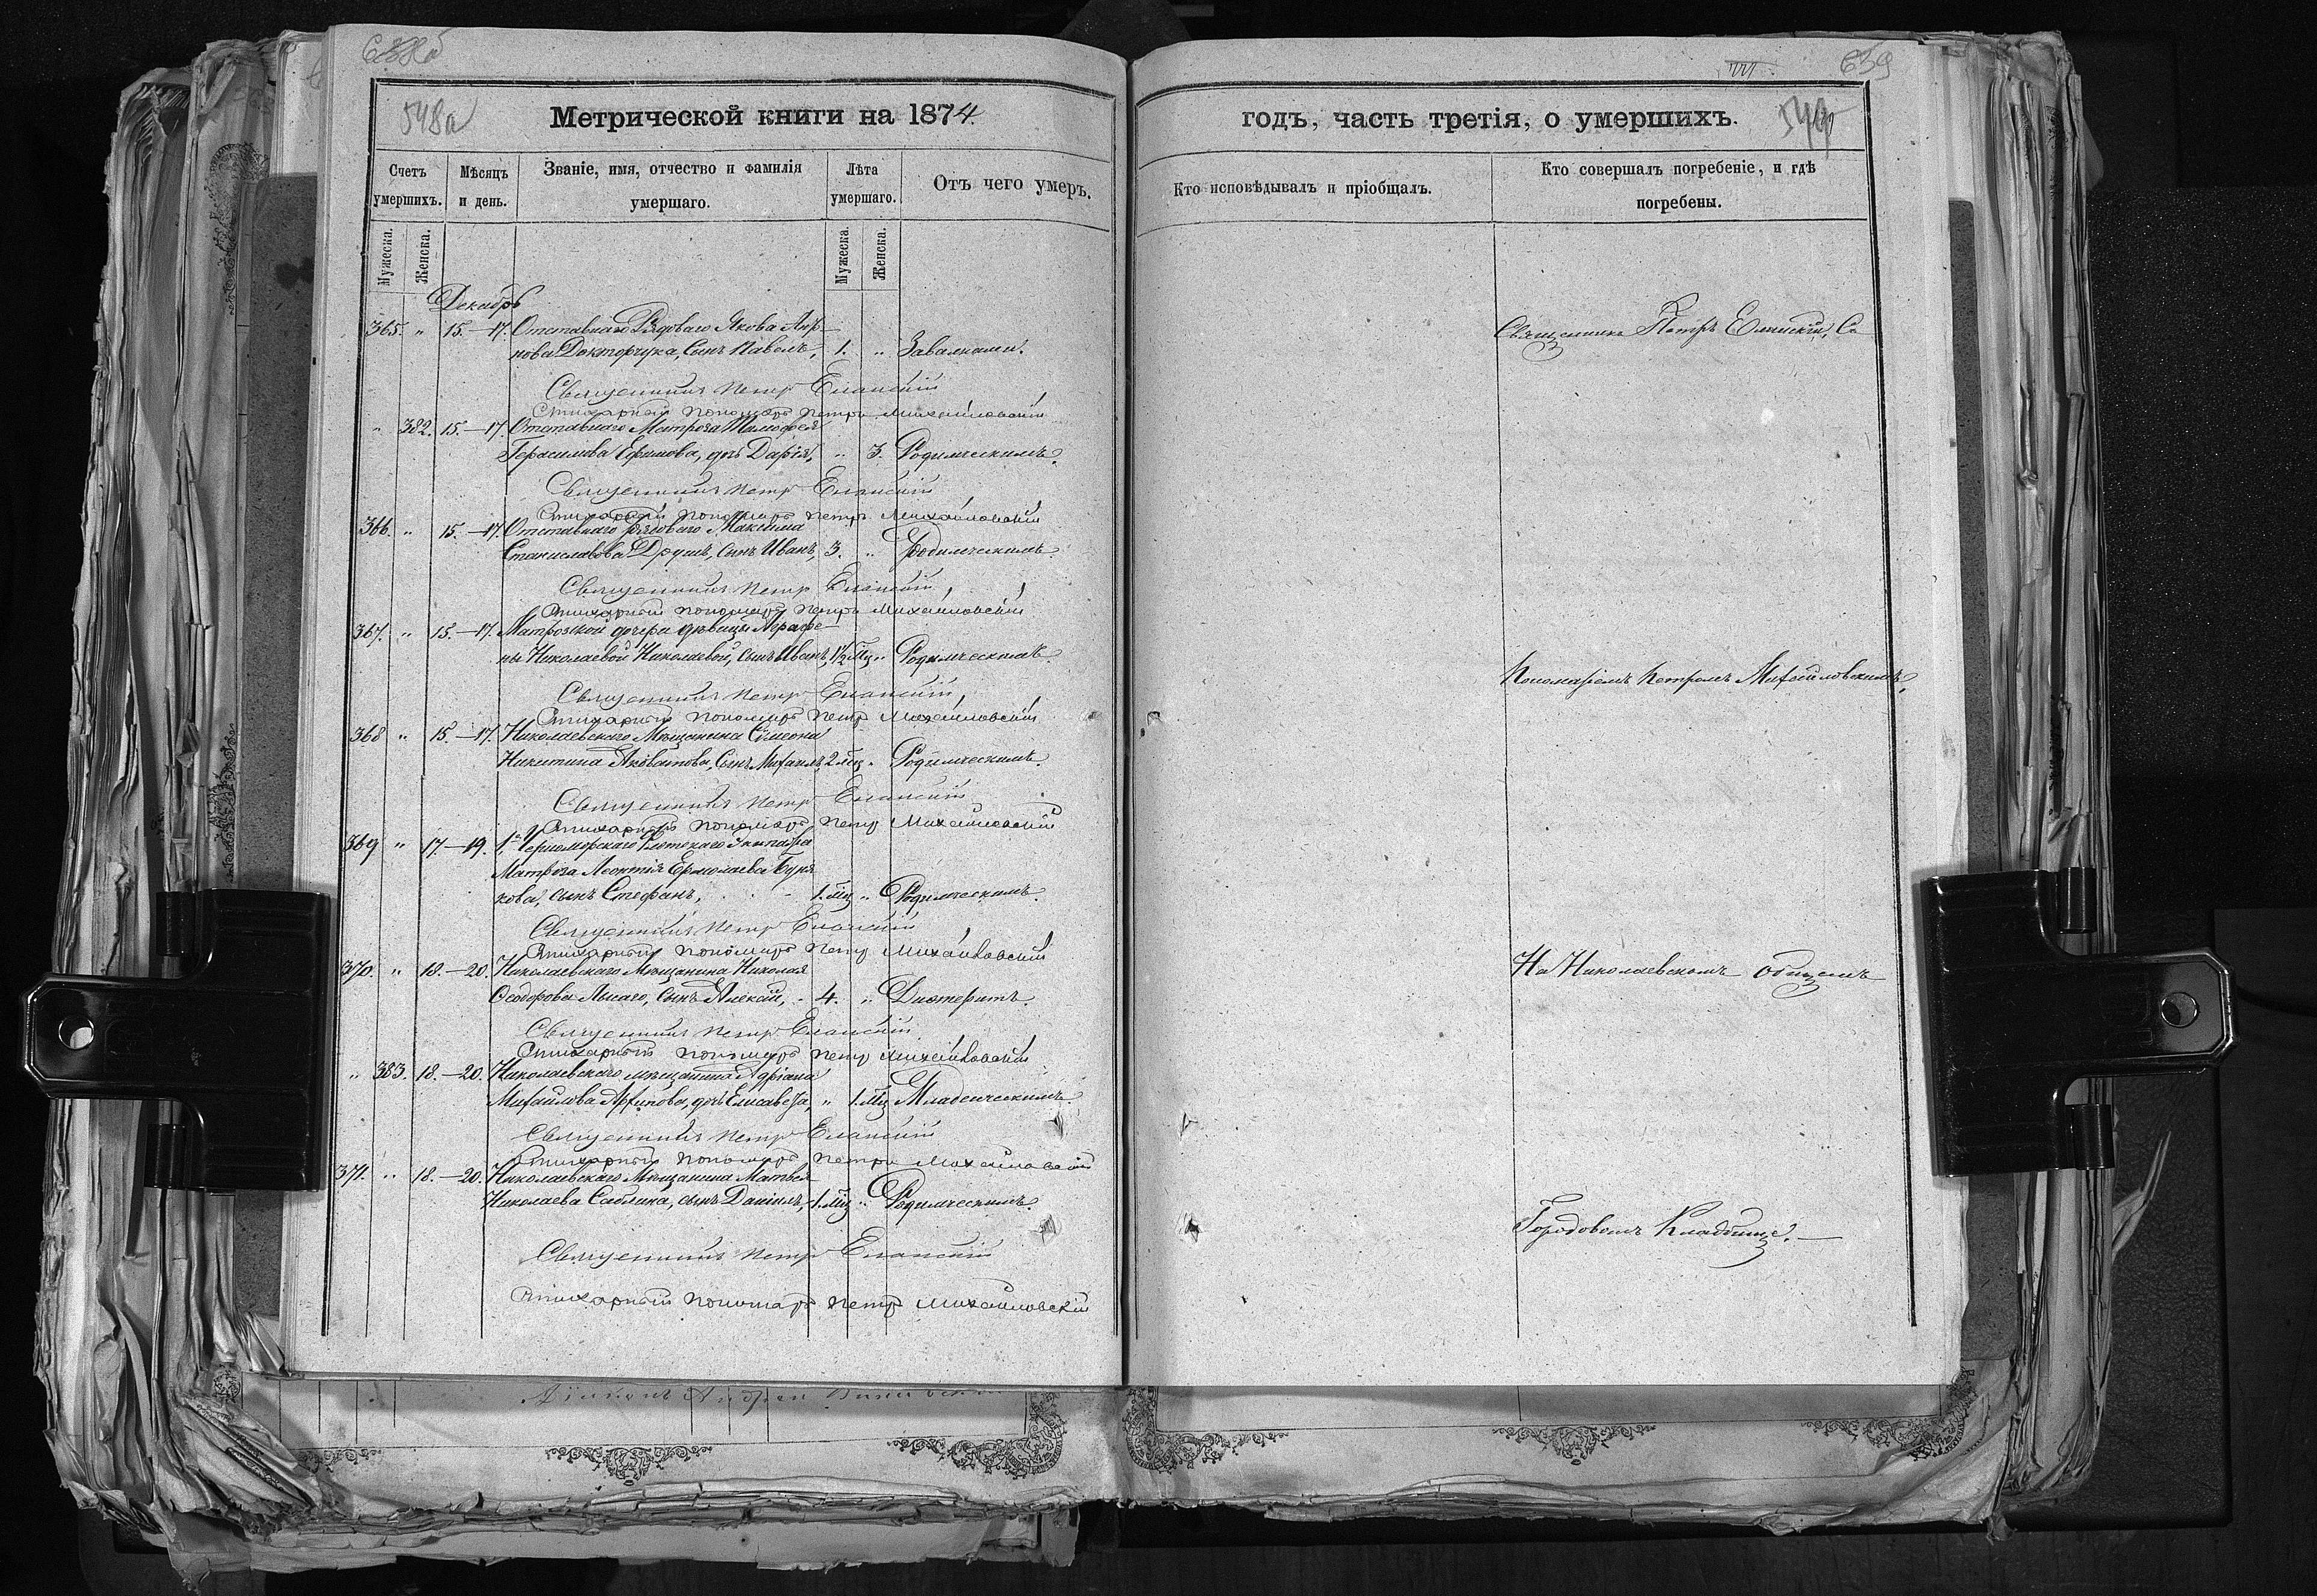 548а
Метрической книги на 1874.
Счетъ умершихъ.
Мѣсяцъ и день.
Званіе, имя, отчество и фамилія умершаго.
Лѣта умершаго.
Отъ чего умеръ.
Мужеска.
Женска.
Мужеска.
Женска.
Декабрь
365. " 15.—17. Отставнаго Рядоваго Якова
Докторчука, Сынъ Павелъ, 1. " Завалками.
Священникъ Петр Еланский
Стихарный пономарь Петръ Михайловский
" 382. 15.—17. Отставнаго Матроса Тимофея
Герасимова Ефимова, дочь Дарія, " 3. Родимческимъ.
Священникъ Петр Еланский
Стихарный пономарь Петръ Михайловский
366. " 15.—17. Отставнаго Рядоваго Максима
Станиславова Друшъ, Сынъ Иванъ, 3. " Родимческимъ.
Священникъ Петр Еланский
Стихарный пономарь Петръ Михайловский
367. " 15.—17. Матрозской дочери дѣвицы Аграфе-
ны Николаевой Николаевой, сынъ Иванъ, 1½ мц " Родимческимъ.
Священникъ Петр Еланский
Стихарный пономарь Петр Михайловский
368 " 15.—17. Николаевскаго Мѣщанина Симеона
Никитина Аховатова, Сынъ Михаилъ, 2 мц " Родимческимъ.
Священникъ Петр Еланский
Стихарный пономарь Петр Михайловский
369 " 17.—19. 1го Черноморскаго Флотскаго Экипажа
Матроза Леонтія Ермолаева Буря
кова, сынъ Стефанъ, 1. мц " Родимческимъ.
Священникъ Петр Еланский
Стихарный пономарь Петр Михайловский
370. " 18.—20. Николаевскаго Мѣщанина Николая
Ѳеодорова Лысаго, Сынъ Алексій, 4. " Дифтеритъ.
Священникъ Петр Еланский
Стихарный пономарь Петр Михайловский
" 383. 18.—20. Николаевскаго мѣщанина Адріана
Михайлова Архипова, дочь Елисавета, " 1. мц Младенческимъ.
Священникъ Петр Еланский
Стихарный пономарь Петръ Михайловский
371. " 18.—20. Николаевскаго Мѣщанина Матвея
Николаева Саблина, сынъ Даніилъ, 1. мц " Родимческимъ.
Священникъ Петр Еланский
Стихарный пономарь Петр Михайловский
659
годъ, часть третія, о умершихъ.
Кто исповѣдывалъ и пріобщалъ.
Кто совершалъ погребеніе, и гдѣ погребены.
Священникъ Петръ Еланскій, Съ
Пономаремъ Петромъ Михайловскимъ,
На Николаевскомъ общемъ
Городовомъ Кладбище.—